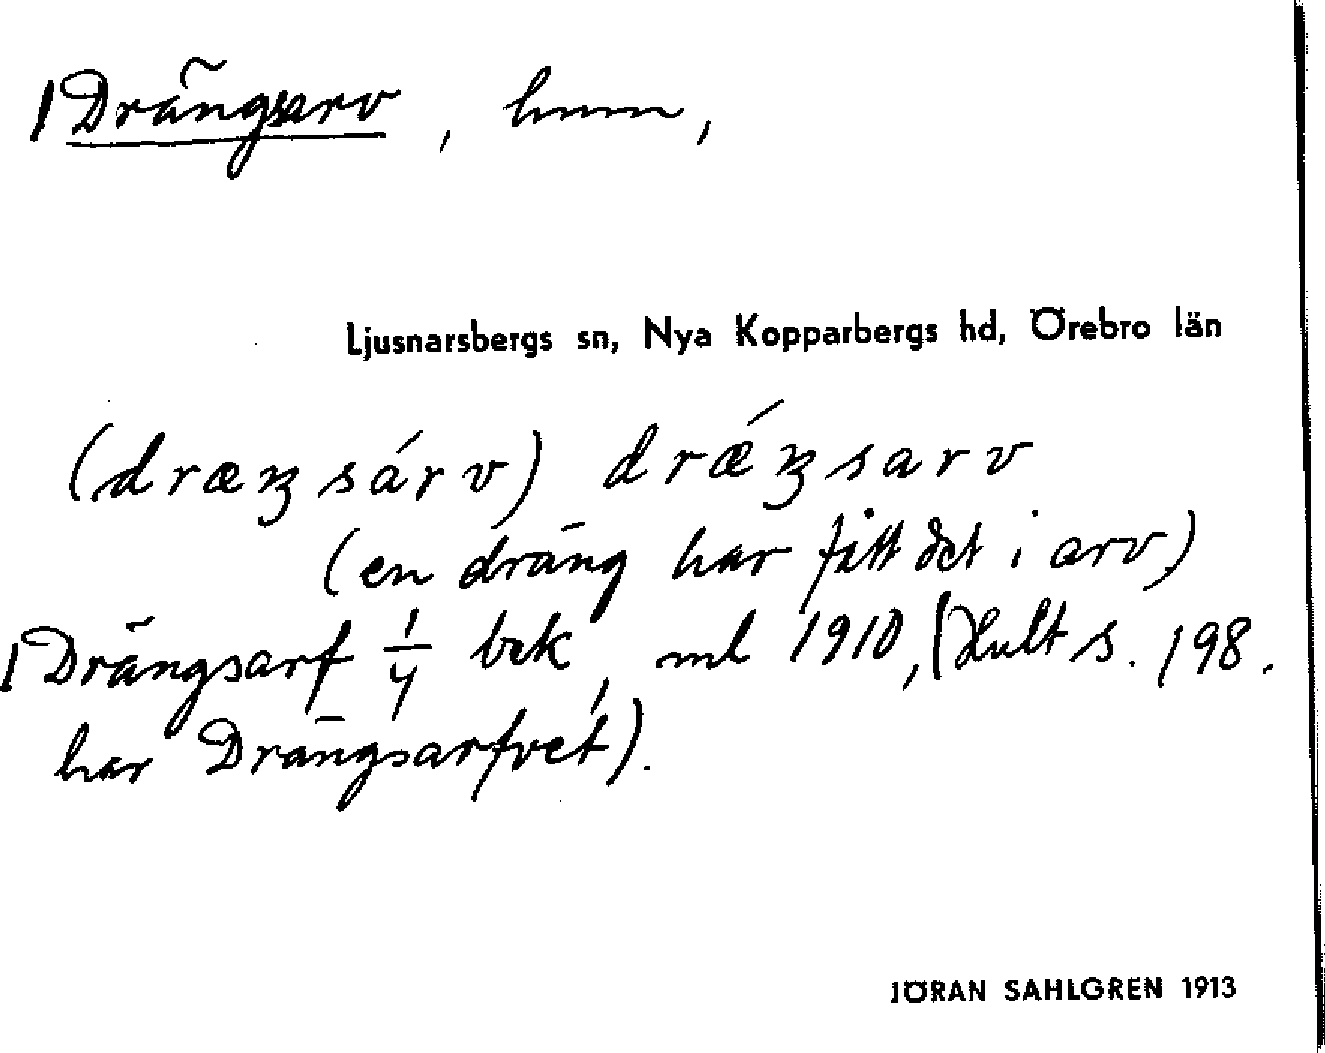 Drängsarv, hmm,
Ljusnarsbergs sn, Nya Kopparbergs hd, Örebro län
(dræŋsárv) drǽŋsarv
(en dräng har fått det i arv)
Drängsarf 1/4 bek, ml 1910, (Hult s. 198.
har Drängsarfvet).
JÖRAN SAHLGREN 1913